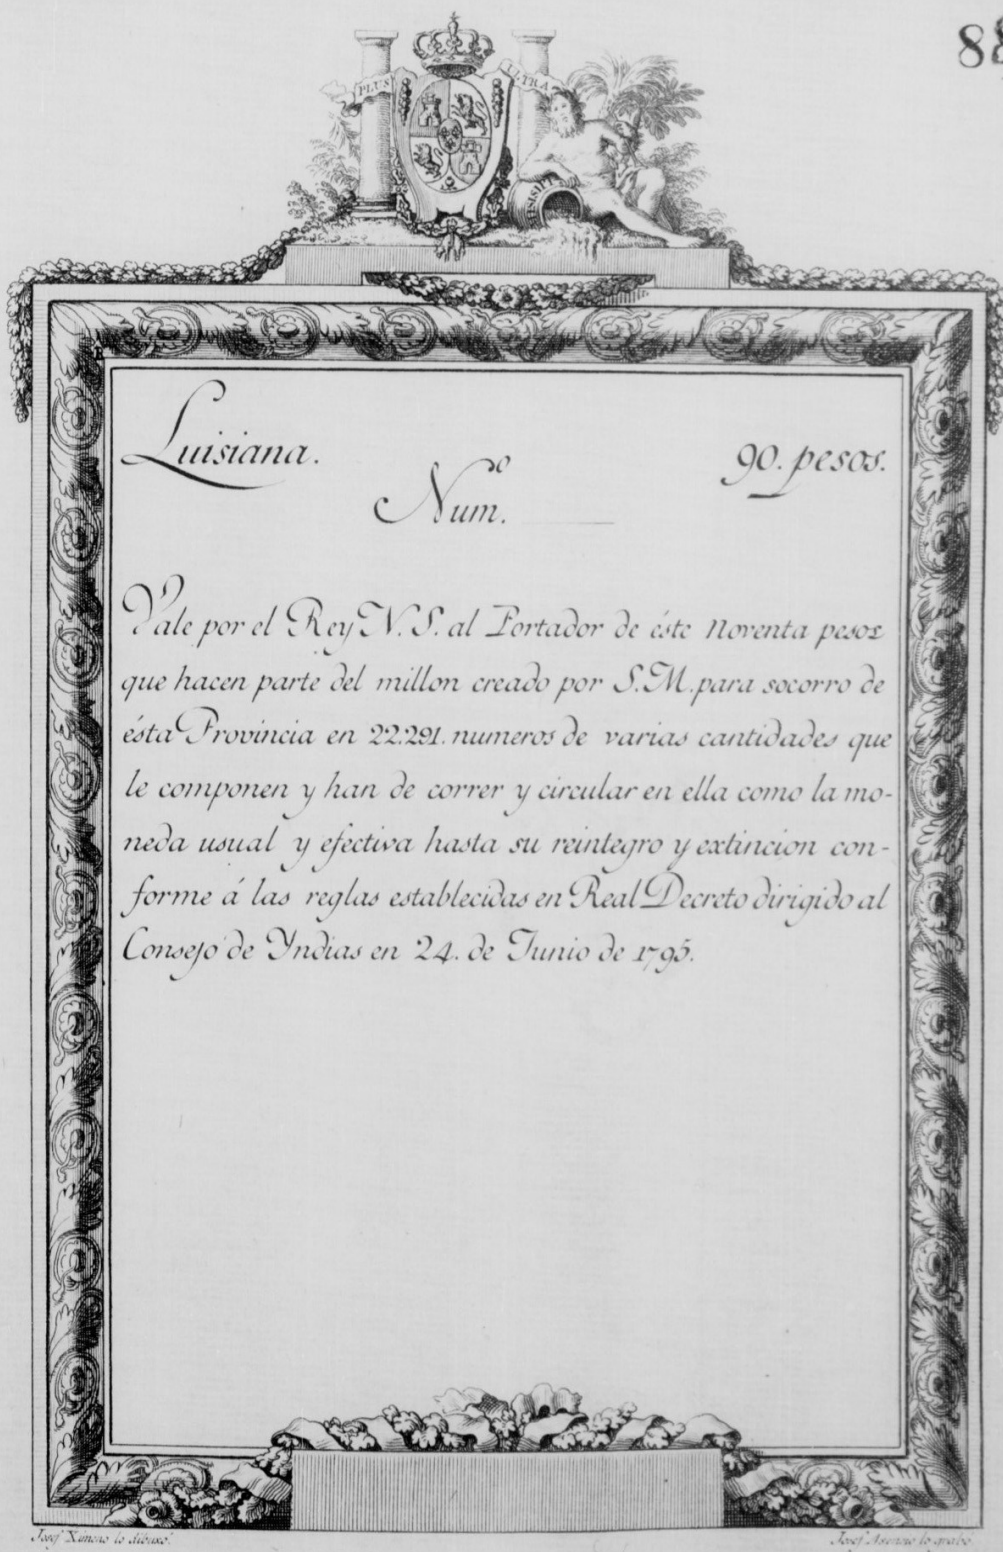 88
PLUS ULTRA
Luisiana. 90. pesos.
Num.º
Vale por el Rey N. S. al Portador de éste Noventa pesos
que hacen parte del millon creado por S. M. para socorro de
ésta Provincia en 22.291. numeros de varias cantidades que
le componen y han de correr y circular en ella como la mo-
neda usual y efectiva hasta su reintegro y extincion con-
forme á las reglas establecidas en Real Decreto dirigido al
Consejo de Yndias en 24. de Junio de 1795.
Josef Ximeno lo dibuxó.
Josef Asensio lo grabó